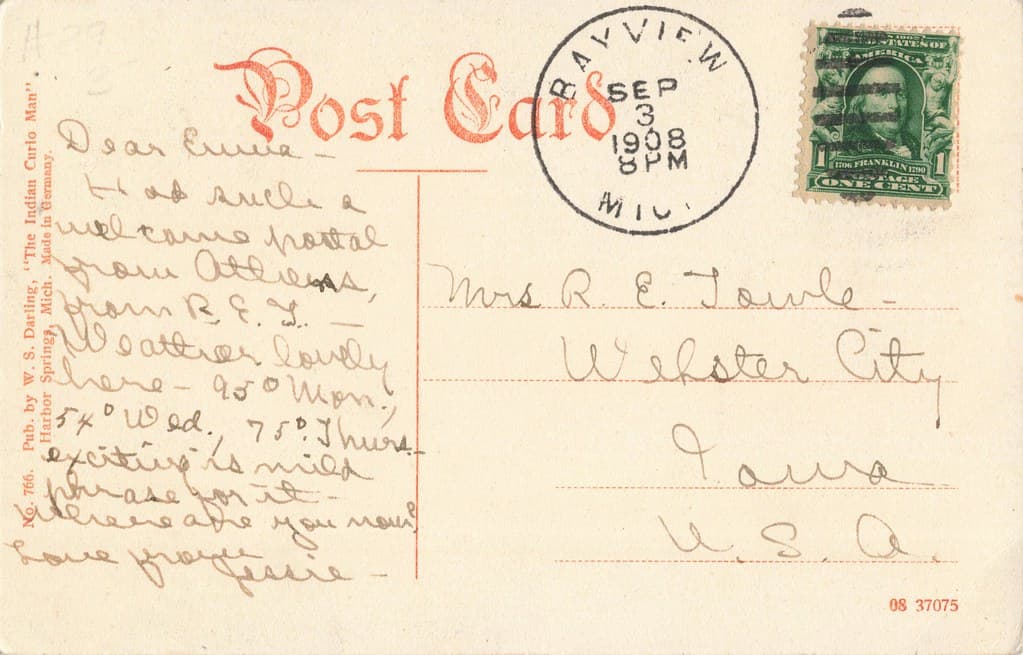 A 89
Post Card
BAYVIEW
SEP
3
1908
8 PM
MICH
SERIES 1902
UNITED STATES OF
AMERICA
1706 FRANKLIN 1790
POSTAGE
1 ONE CENT 1
No. 766. Pub. by W. S. Darling, "The Indian Curio Man".
Harbor Springs, Mich. Made in Germany.
Dear Emma –
Had such a
welcome postal
from Athens,
from R. E. T. –
Weather lovely
here – 95° Mon.,
54° Wed., 75° Thurs –
exciting is mild
phrase for it –
Where are you now?
Love from
Jessie –
Mrs R. E. Towle –
Webster City
Iowa
U. S. A.
08 37075